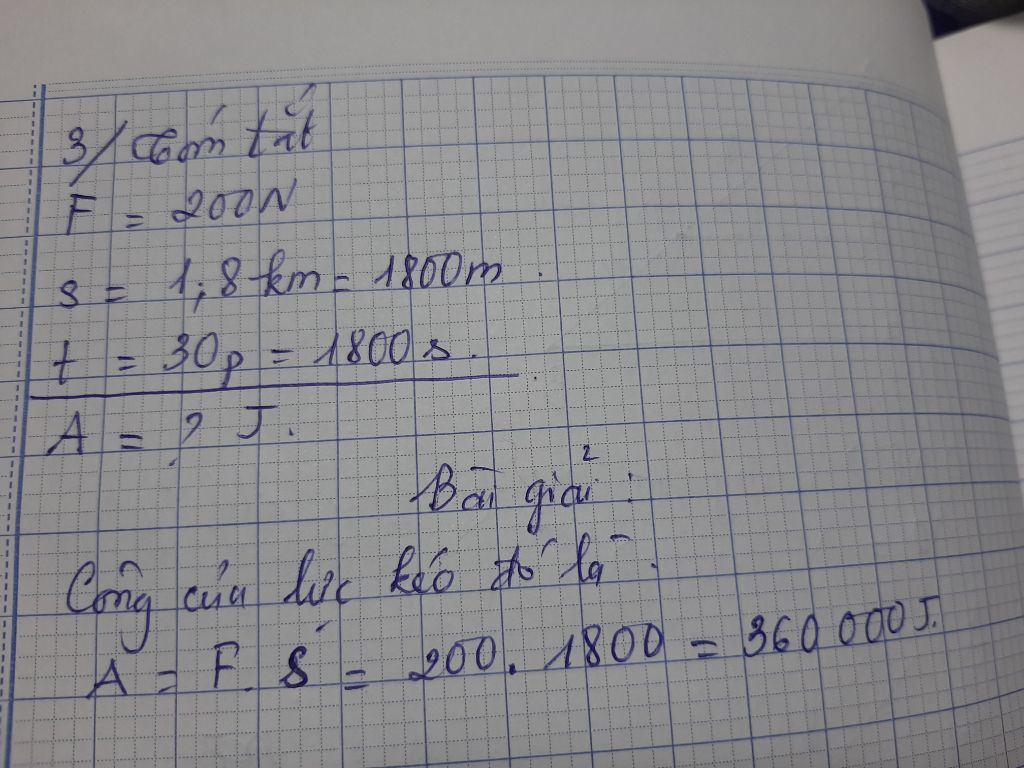 3/ Tóm tắt
F = 200N
s = 1,8 km = 1800m.
t = 30p = 1800s.
A = ? J.
Bài giải :
Công của lực kéo đó là.
A = F. S = 200. 1800 = 360 000J.